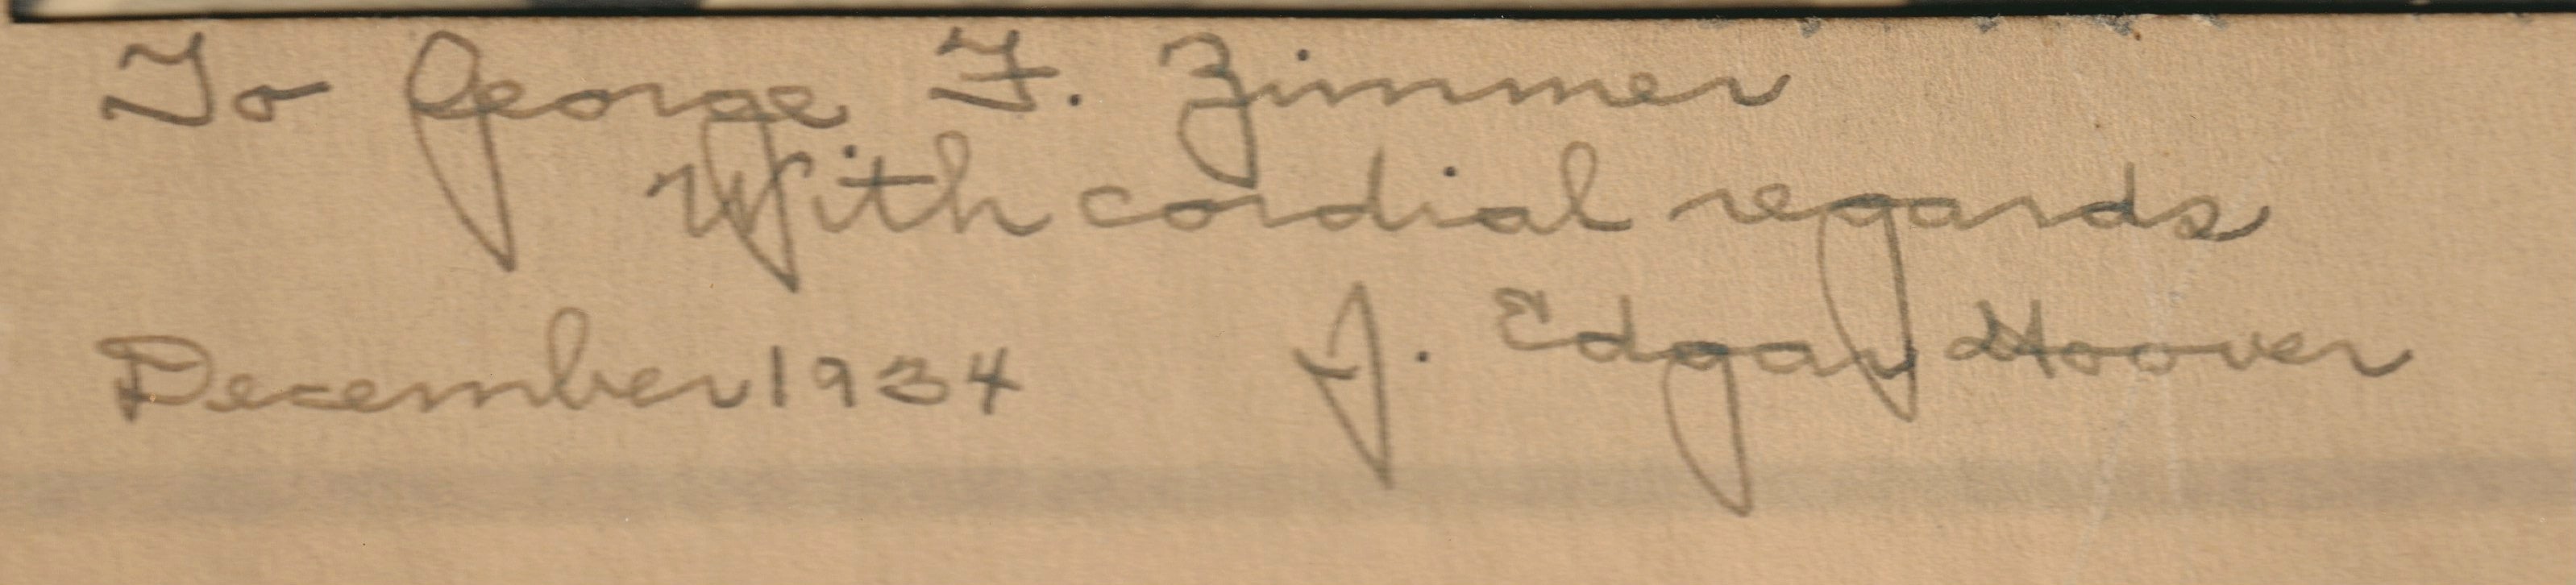 To George F. Zimmer
With cordial regards
December 1934 J. Edgar Hoover